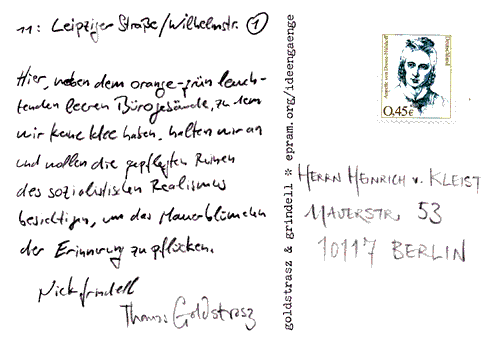 11: Leipziger Straße/Wilhelmstr. 1
Hier, neben dem orange-grün leuch-
tenden leeren Bürogebäude, zu dem
wir keine Idee haben, halten wir an
und wollen die gepflegten Ruinen
des sozialistischen Realismus
besichtigen, um das Mauerblümchen
der Erinnerung zu pflücken.
Nick Grindell
Thomas Goldstrasz
goldstrasz & grindell * epram.org/ideengaenge
Deutschland
Annette von Droste-Hülshoff
0,45€
HERRN HEINRICH v. KLEIST
MAUERSTR. 53
10117 BERLIN